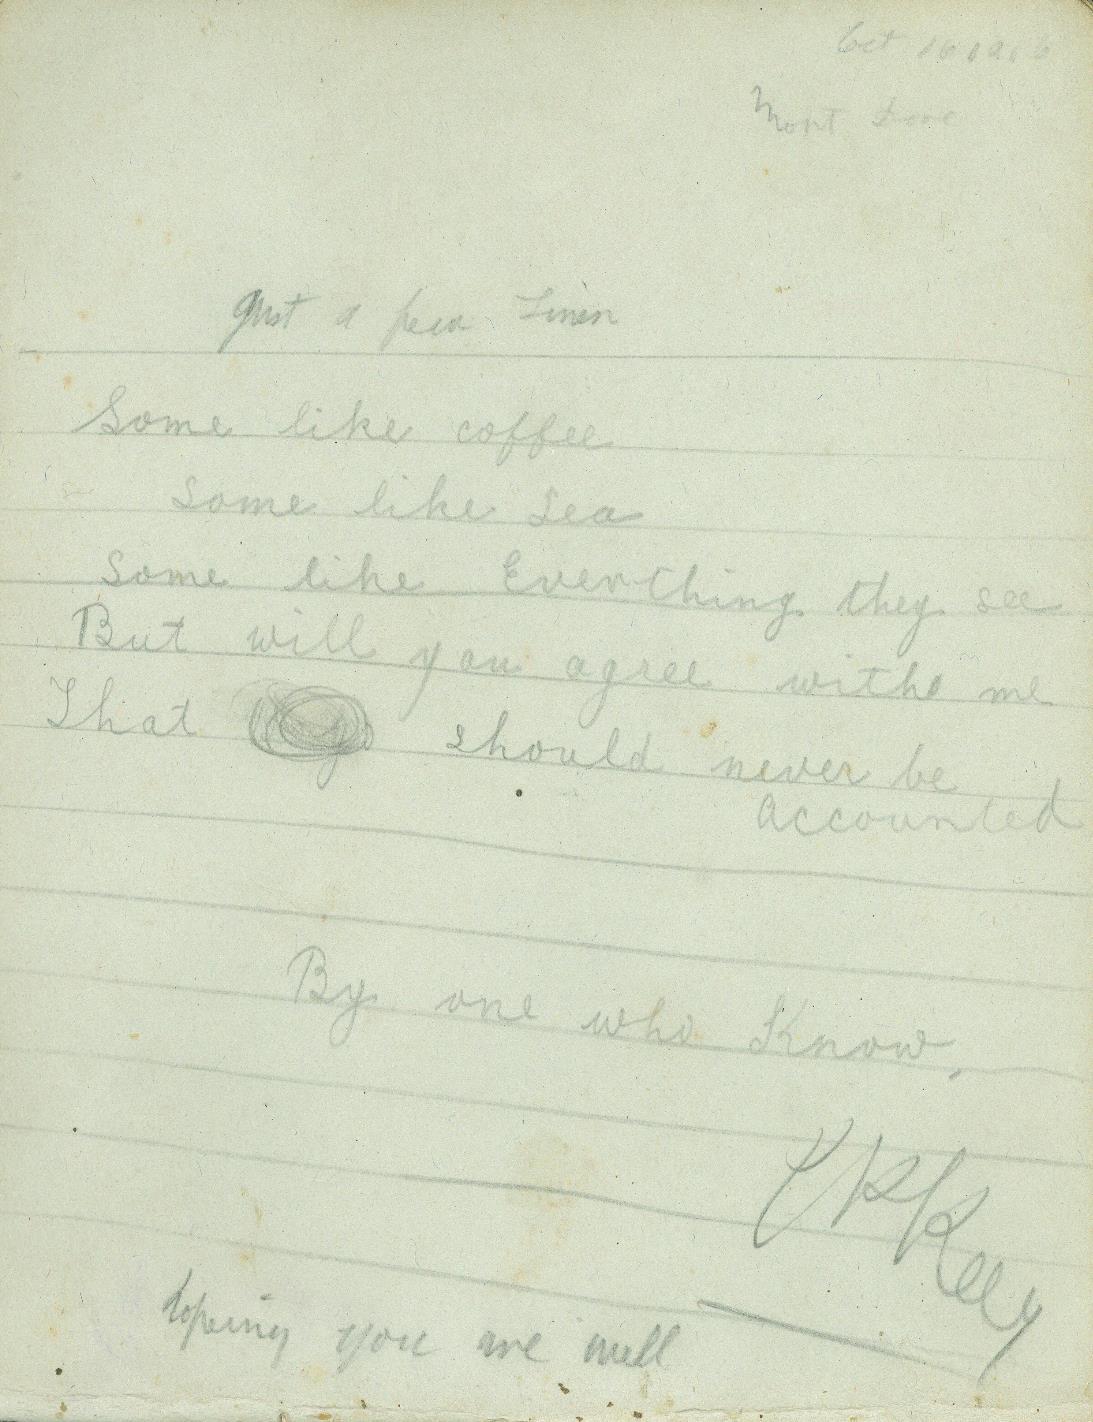 Oct 16 1916
Mont Dore
Just a few Lines
Some like coffee
Some like Tea
Some like Everthing they see
But will you agree withe me
That should never be
accounted
By one who Know,
PKelly
hopeing you are well